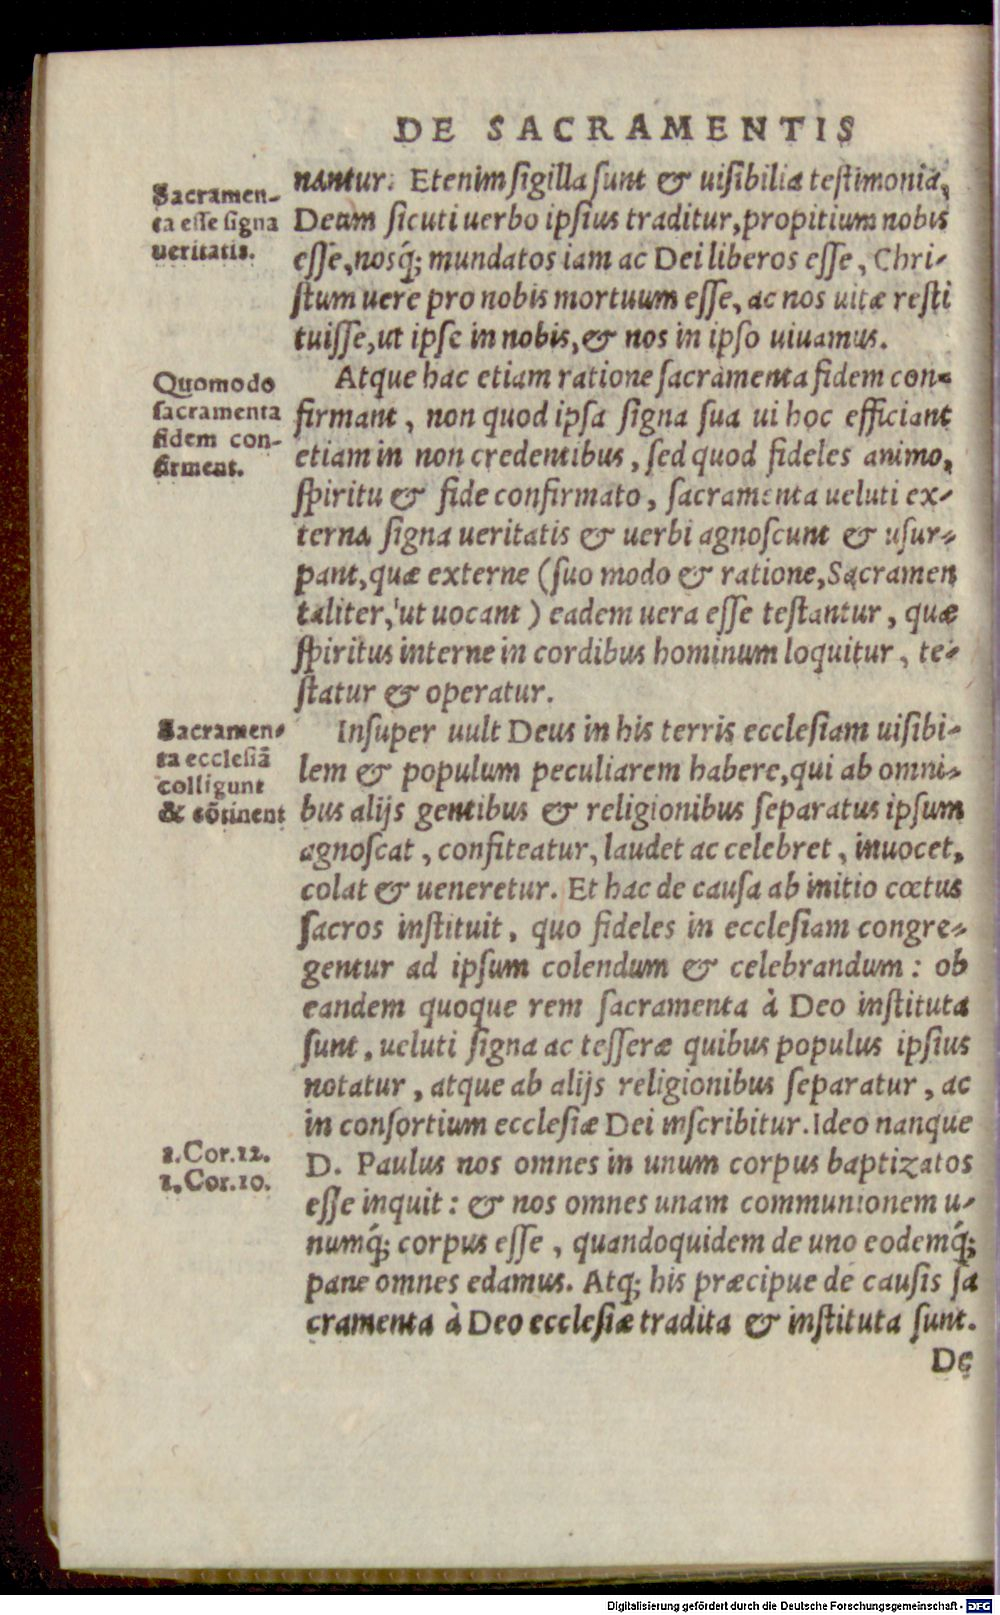 DE SACRAMENTIS
Sacramen-
ta esse signa
ueritatis.
nantur. Etenim sigilla sunt & uisibilia testimonia,
Deum sicuti uerbo ipsius traditur, propitium nobis
esse, nosq́; mundatos iam ac Dei liberos esse, Chri-
stum uere pro nobis mortuum esse, ac nos uitæ resti
tuisse, ut ipse in nobis, & nos in ipso uiuamus.
Quomodo
sacramenta
fidem con-
firment.
Atque hac etiam ratione sacramenta fidem con-
firmant, non quod ipsa signa sua ui hoc efficiant
etiam in non credentibus, sed quod fideles animo,
spiritu & fide confirmato, sacramenta ueluti ex-
terna signa ueritatis & uerbi agnoscunt & usur-
pant, quæ externe (suo modo & ratione, Sacramen
taliter, ut uocant) eadem uera esse testantur, quæ
spiritus interne in cordibus hominum loquitur, te-
statur & operatur.
Sacramen-
ta ecclesiã
colligunt
& cõtinent
Insuper uult Deus in his terris ecclesiam uisibi-
lem & populum peculiarem habere, qui ab omni-
bus alijs gentibus & religionibus separatus ipsum
agnoscat, confiteatur, laudet ac celebret, inuocet,
colat & ueneretur. Et hac de causa ab initio cœtus
sacros instituit, quo fideles in ecclesiam congre-
gentur ad ipsum colendum & celebrandum: ob
eandem quoque rem sacramenta à Deo instituta
sunt, ueluti signa ac tesseræ quibus populus ipsius
notatur, atque ab alijs religionibus separatur, ac
in consortium ecclesiæ Dei inscribitur. Ideo nanque
1.Cor.12.
1.Cor.10.
D. Paulus nos omnes in unum corpus baptizatos
esse inquit: & nos omnes unam communionem u-
numq́; corpus esse, quandoquidem de uno eodemq́;
pane omnes edamus. Atq; his præcipue de causis sa
cramenta à Deo ecclesiæ tradita & instituta sunt.
De
Digitalisierung gefördert durch die Deutsche Forschungsgemeinschaft - DFG